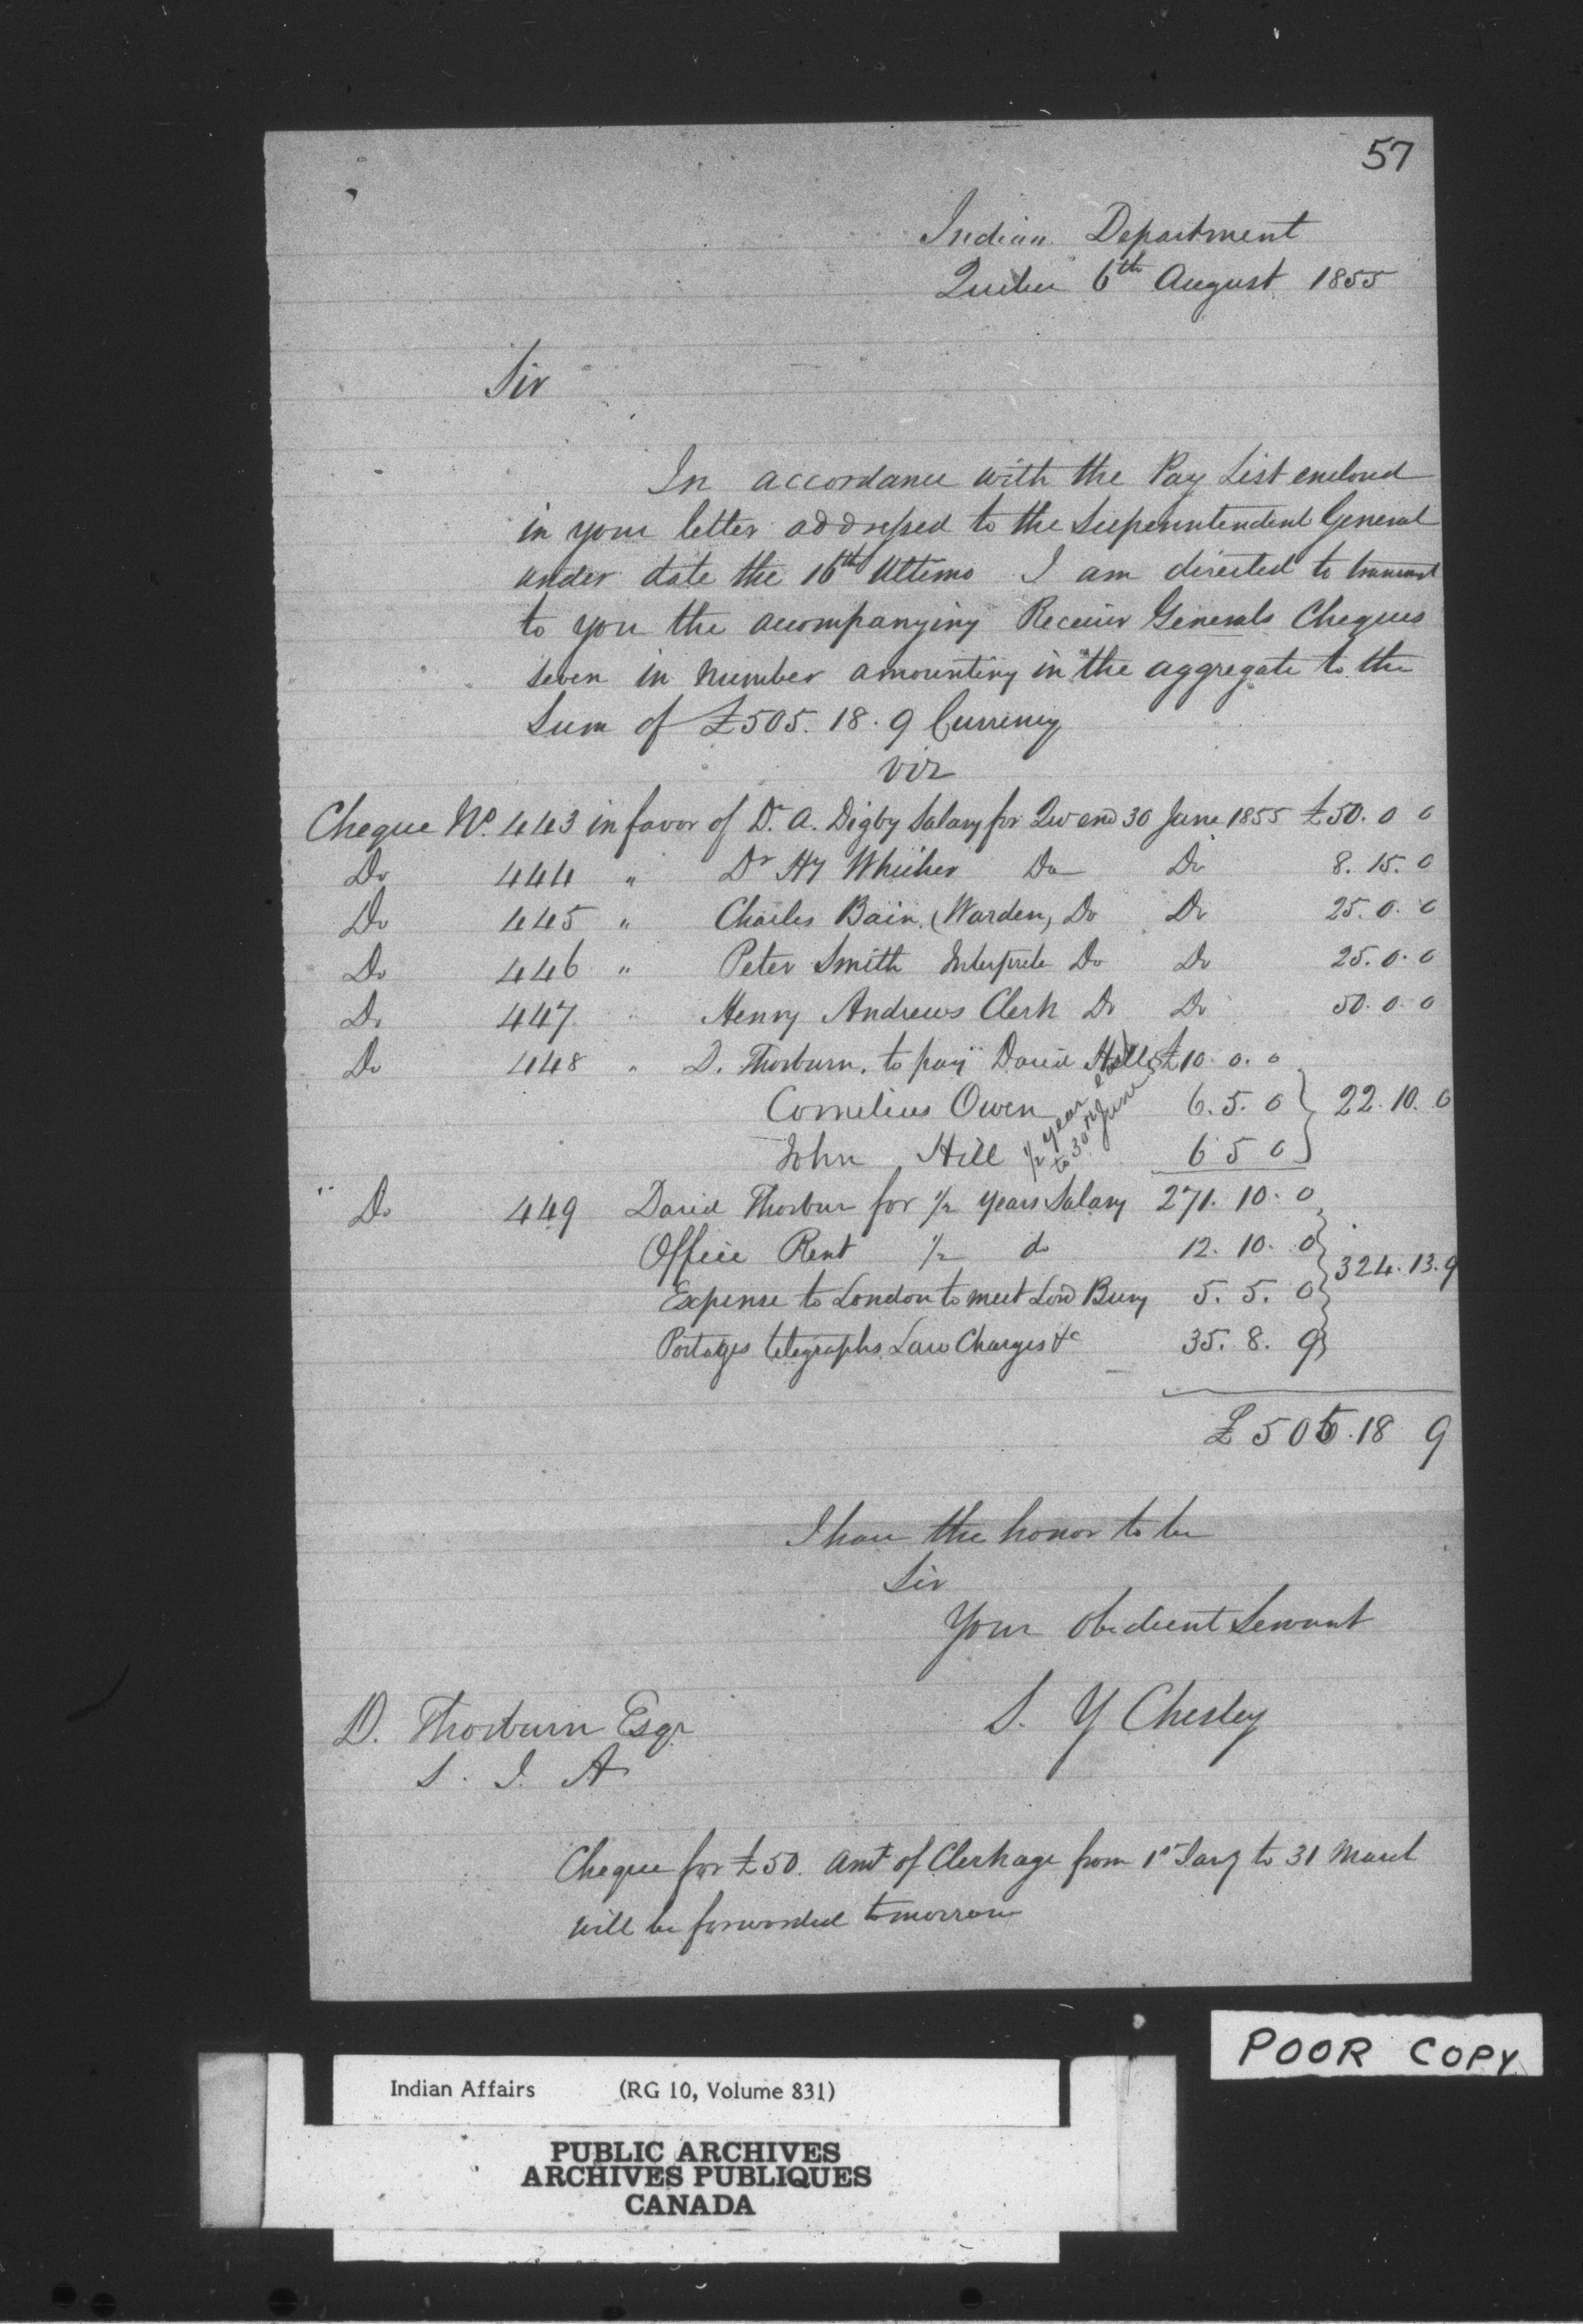 57
Indian Department
Quebec 6th August 1855
Sir
In accordance with the Pay List enclosed
in your letter addressed to the Superintendent General
under date the 16th Ultimo I am directed to transmit
to you the accompanying Receiver Generals Cheques
seven in number amounting in the aggregate to the
Sum of £505. 18. 9 Currency
viz
Cheque No. 443 in favor of Dr. A. Digby Salary for Qr end 30 June 1855 £50. 0 0
Do 444 " Dr Hy Do Do 8. 15. 0
Do 445 " Charles Bain (Warden) Do Do 25. 0. 0
Do 446 " Peter Smith Interprete Do Do 25. 0. 0
Do 447 " Henry Andrews Clerk Do Do 50. 0. 0
Do 448 " D. Thorburn, to pay David Hill £10. 0. 0
Cornelius Owen 6. 5. 0 } 22. 10. 0
John Hill ½ year to 30th June 6 5 0
Do 449 David Thorburn for ½ years Salary 271. 10. 0
Office Rent ½ do 12. 10. 0 } 324. 13. 9
Expense to London to meet Lord Bury 5. 5. 0
Postages telegraphs Law Charges &c 35. 8. 9
£505. 18 9
I have the honor to be
Sir
Your obedient Servant
S. Y Chesley
D. Thorburn Esqr
S. I. A
Cheque for £50. amt of Clerkage from 1st Jany to 31 March
will be forwarded tomorrow
POOR COPY
Indian Affairs (RG 10, Volume 831)
PUBLIC ARCHIVES
ARCHIVES PUBLIQUES
CANADA